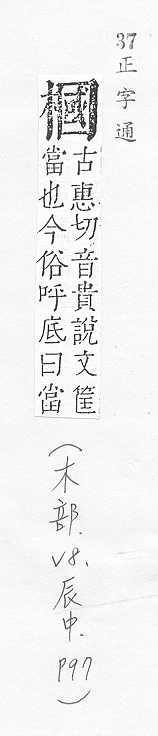 37正字通
槶
古惠切音貴說文筐
當也今俗呼底曰當
(木部.V8.辰中.P97)